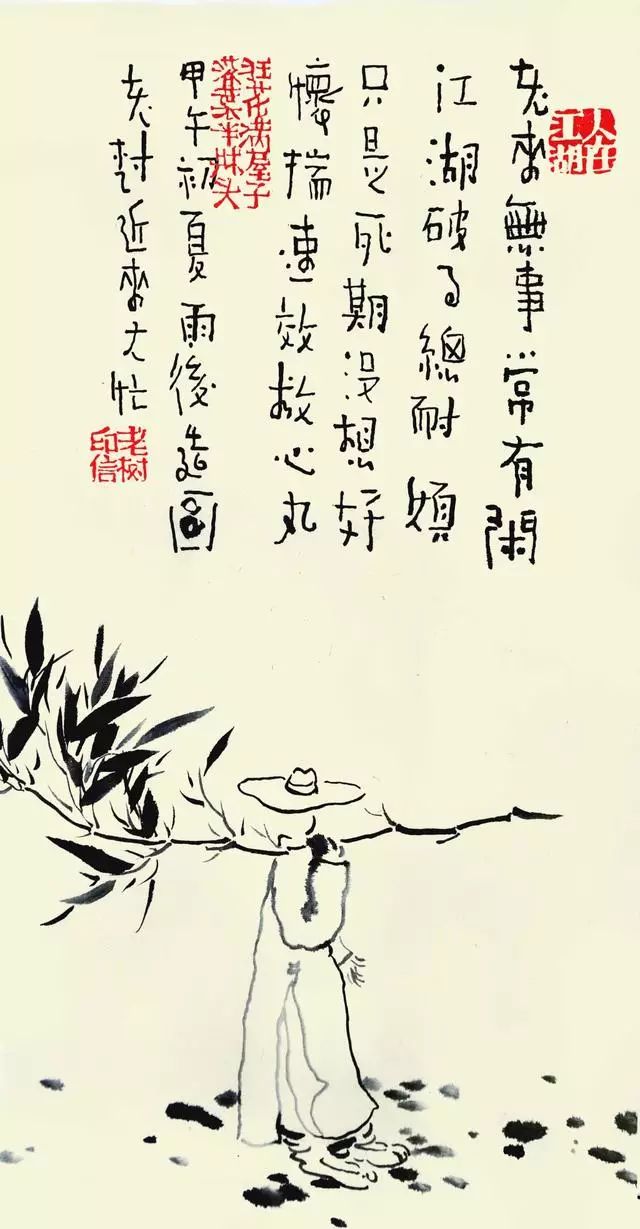 人在
江湖
老來無事常有閑
江湖破了總耐煩
只是死期没想好
懷揣速效救心丸
狂花满屋子
落葉半牀头
甲午初夏雨後造圖
老樹近來忙
老树
印信